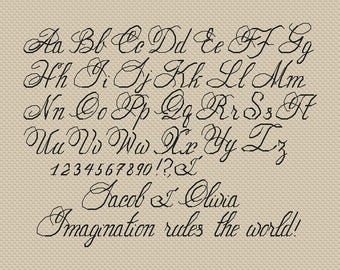 Aa Bb Cc Dd Ee Ff Gg
Hh Ii Jj Kk Ll Mm
Nn Oo Pp Qq Rr Ss Tt
Uu Vv Ww Xx Yy Zz
1234567890!?,&
Jacob & Olivia
Imagination rules the world!